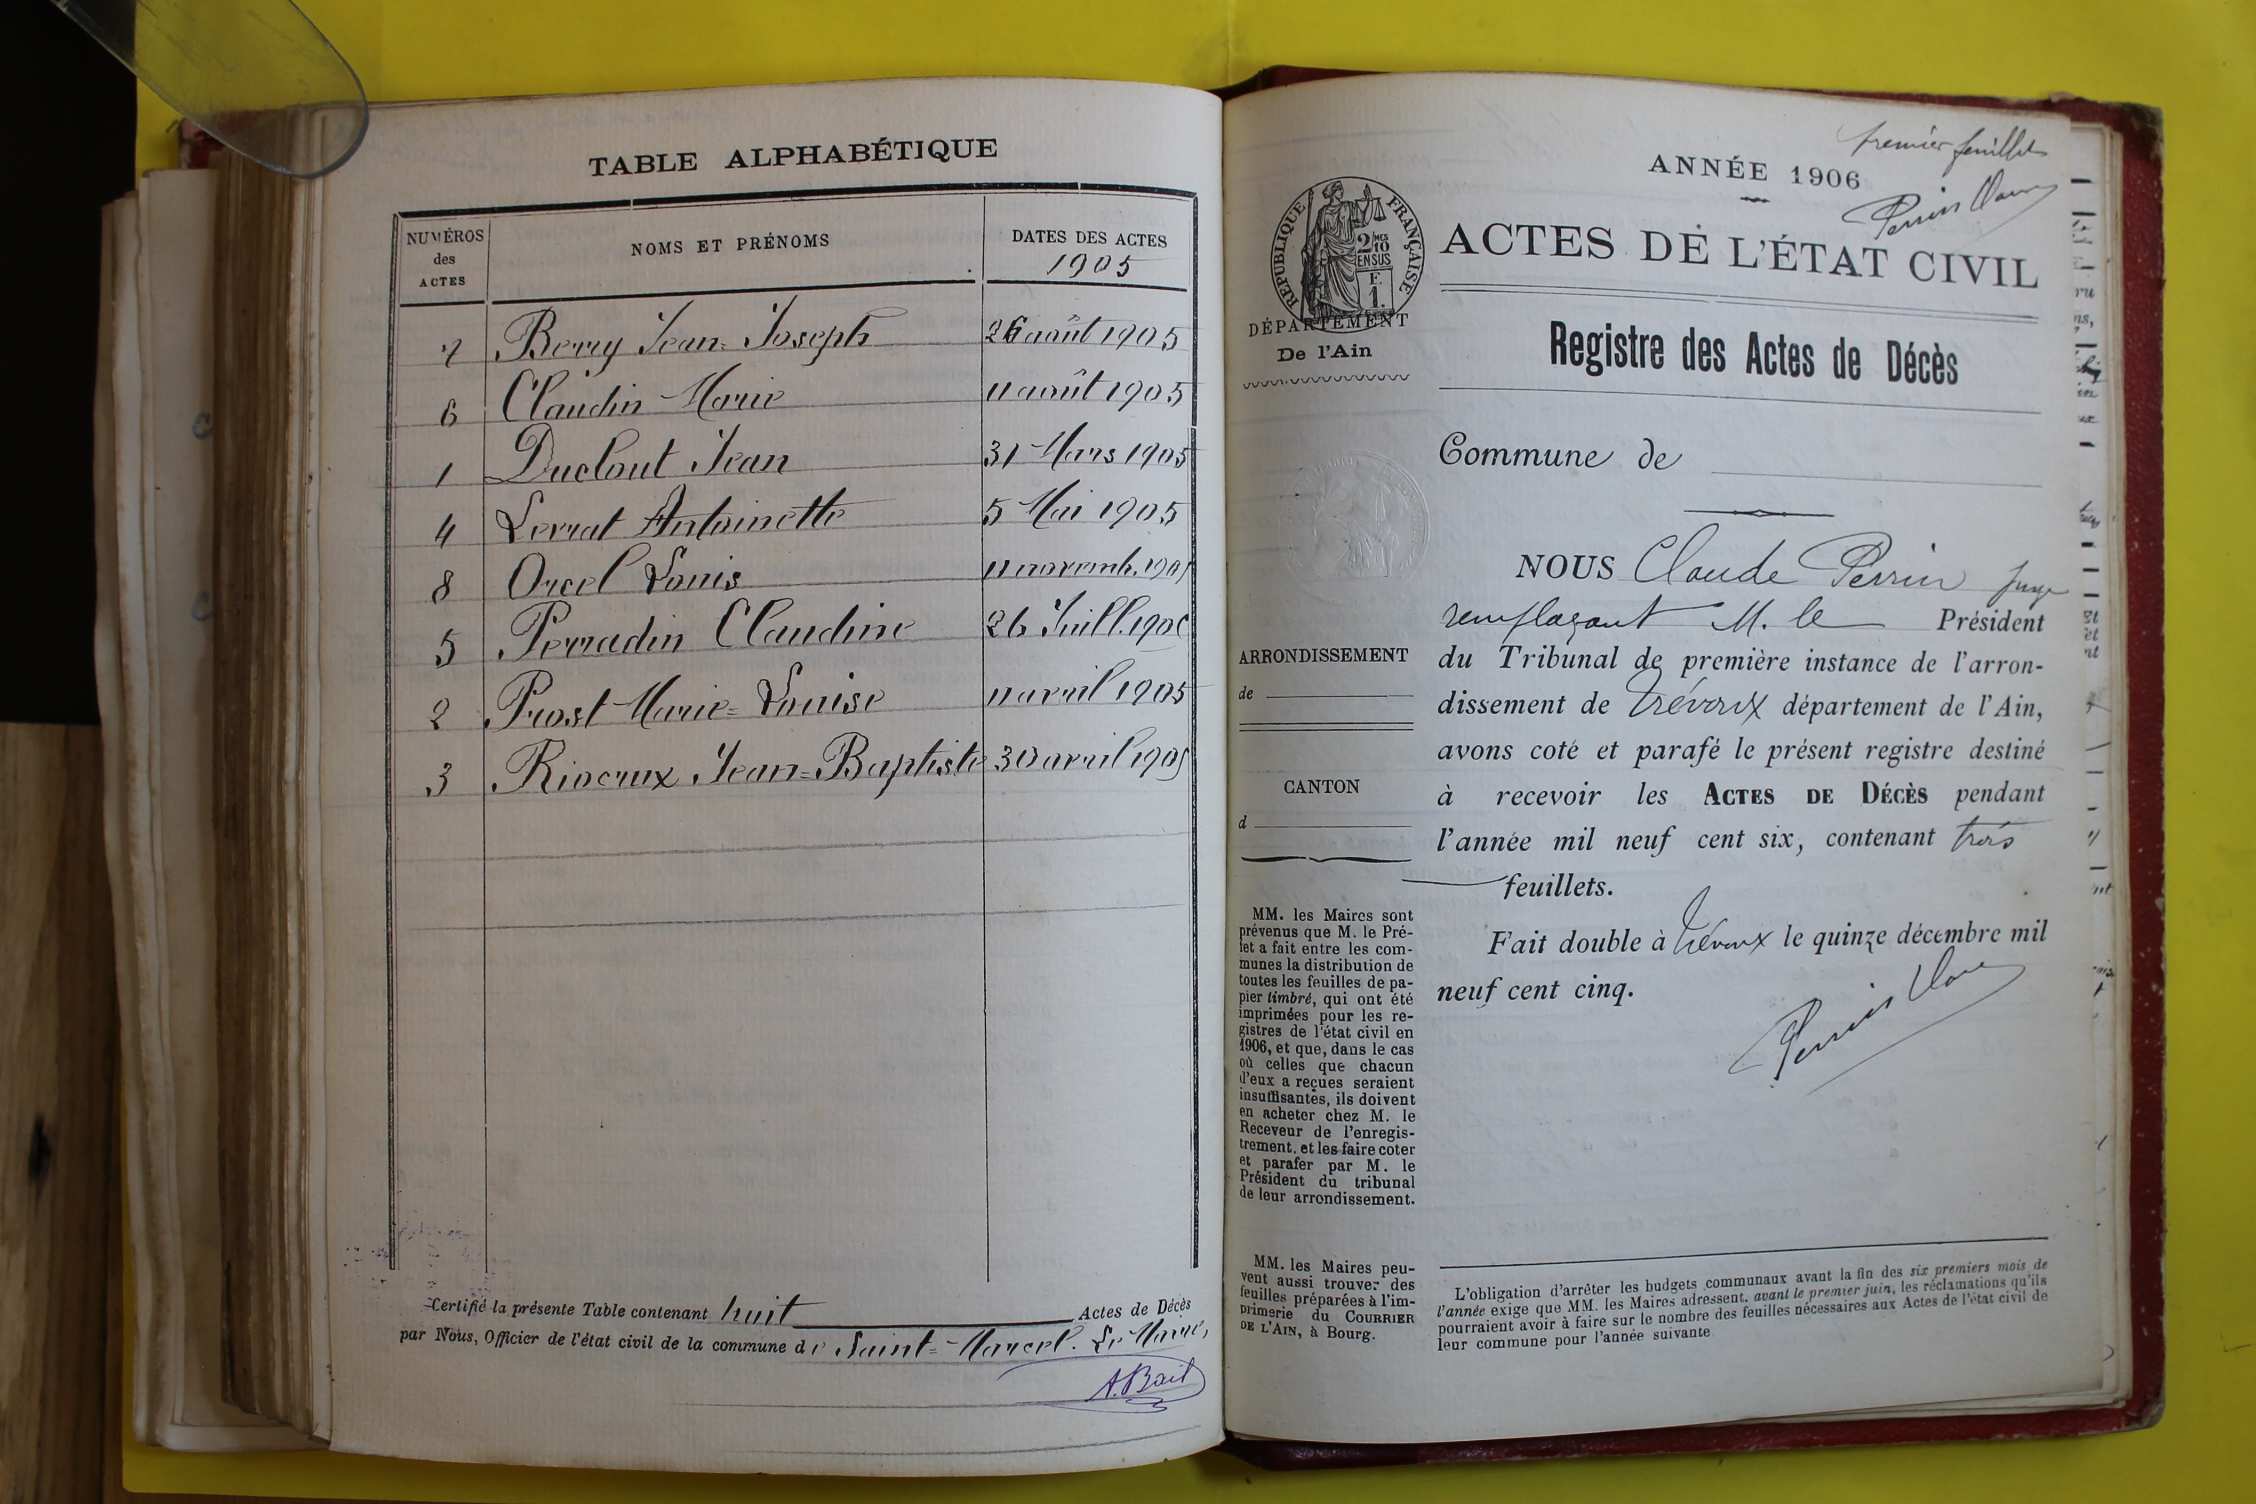 TABLE ALPHABÉTIQUE
NUMÉROS des ACTES
NOMS ET PRÉNOMS
DATES DES ACTES
1905
7 Berry Jean-Joseph 26 août 1905
6 Claudin Marie 11 août 1905
1 Duclout Jean 31 Mars 1905
4 Levrat Antoinette 5 Mai 1905
8 Orcel Louis 11 novemb. 1905
5 Perradin Claudine 26 Juill. 190
2 Prost Marie=Louise 11 avril 1905
3 Rivoux Jean=Baptiste 30 avril 1905
Certifié la présente Table contenant huit Actes de Décès
par Nous, Officier de l'état civil de la commune de Saint=Marcel. Le Maire,
A. Bail
premier feuillet
ANNÉE 1906
Perrin Claude
ACTES DE L'ÉTAT CIVIL
RÉPUBLIQUE FRANÇAISE
2/MES
10
EN SUS
F.
1.
DÉPARTEMENT
De l'Ain
Registre des Actes de Décès
Commune de
NOUS Claude Perrin juge
remplaçant M. le Président
du Tribunal de première instance de l'arron-
dissement de Trévoux département de l'Ain,
avons coté et parafé le présent registre destiné
à recevoir les ACTES DE DÉCÈS pendant
l'année mil neuf cent six, contenant trois
feuillets.
Fait double à Trévoux le quinze décembre mil
neuf cent cinq.
Perrin Claude
ARRONDISSEMENT
de
CANTON
d
MM. les Maires sont
prévenus que M. le Pré-
fet a fait entre les com-
munes la distribution de
toutes les feuilles de pa-
pier timbré, qui ont été
imprimées pour les re-
gistres de l'état civil en
1906, et que, dans le cas
où celles que chacun
d'eux a reçues seraient
insuffisantes, ils doivent
en acheter chez M. le
Receveur de l'enregis-
trement, et les faire coter
et parafer par M. le
Président du tribunal
de leur arrondissement.
MM. les Maires peu-
vent aussi trouver des
feuilles préparées à l'im-
primerie du COURRIER
DE L'AIN, à Bourg.
L'obligation d'arrêter les budgets communaux avant la fin des six premiers mois de
l'année exige que MM. les Maires adressent, avant le premier juin, les réclamations qu'ils
pourraient avoir à faire sur le nombre des feuilles nécessaires aux Actes de l'état civil de
leur commune pour l'année suivante